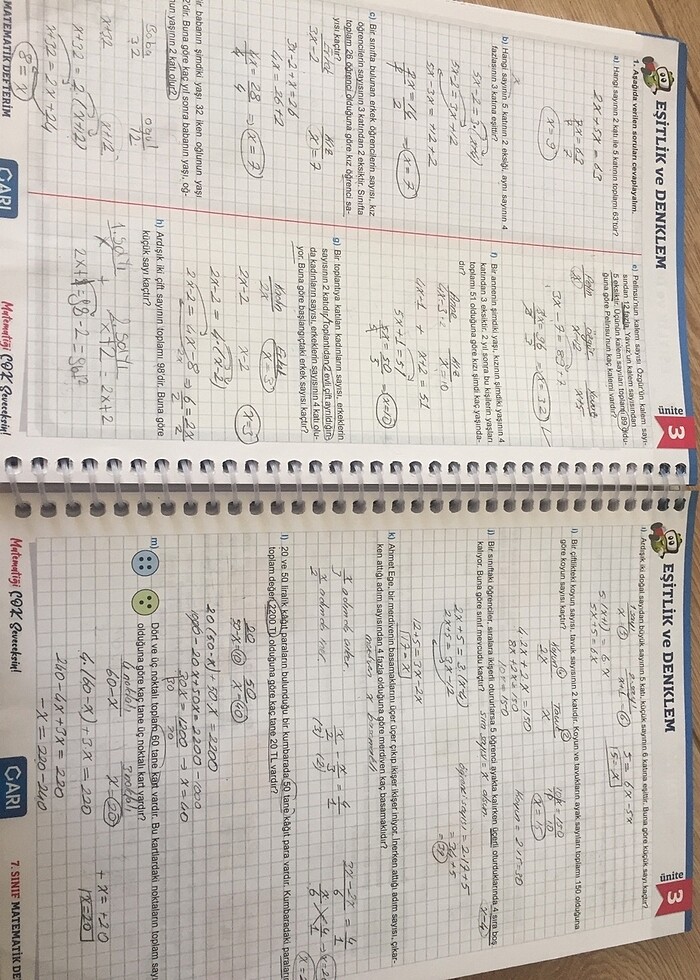 EŞİTLİK ve DENKLEM
ünite
3
1. Aşağıda verilen soruları cevaplayalım.
a) Hangi sayının 2 katı ile 5 katının toplamı 63'tür?
2x+5x=63
x=9
b) Hangi sayının 5 katının 2 eksiği, aynı sayının 4
fazlasının 3 katına eşittir?
5x-2=3.(x+4)
5x-2=3x+12
5x-3x=12+2
x=7
c) Bir sınıfta bulunan erkek öğrencilerin sayısı, kız
öğrencilerin sayısının 3 katından 2 eksiktir. Sınıfta
toplam 26 öğrenci olduğuna göre kız öğrenci sa-
yısı kaçtır?
Erkek
Kız
3x-2
x=7
3x-2+x=26
4x=26+2
4x=28
x=7
ir babanın şimdiki yaşı 32 iken oğlunun yaşı
2'dir. Buna göre kaç yıl sonra babanın yaşı, oğ-
un yaşının 2 katı olur?
Baba
oğul
32
12
x+32
x+12
x+32=2(x+12)
x+32=2x+24
8=x
MATEMATİK DEFTERİM
ÇARI
e) Pelinsu'nun kalem sayısı Özgür'ün kalem sayı-
sından 12 fazla, Yavuz'un kalem sayısından
5 eksiktir. Üçünün kalem sayıları toplamı 89 oldu-
ğuna göre Pelinsu'nun kaç kalemi vardır?
x-12
x+5
3x-7=89
3x=96
x=32
f) Bir annenin şimdiki yaşı, kızının şimdiki yaşının 4
katından 3 eksiktir. 2 yıl sonra bu kişilerin yaşları
toplamı 51 olduğuna göre kızı şimdi kaç yaşında-
dır?
Anne
Kız
x=10
4x-1 + x+2=51
5x+1=51
5x=50
x=10
g) Bir toplantıya katılan kadınların sayısı, erkeklerin
sayısının 2 katıdır. Toplantıdan 2 evli çift ayrıldığın-
da kadınların sayısı, erkeklerin sayısının 4 katı olu-
yor. Buna göre başlangıçtaki erkek sayısı kaçtır?
Kadın
Erkek
2x
x=3
2x-2
x-2
x=3
2x-2=4.(x-2)
2x-2=4x-8
6=2x
h) Ardışık iki çift sayının toplamı 98'dir. Buna göre
küçük sayı kaçtır?
1. sayı
2. sayı
Matematiği ÇOK Seveceksin!
EŞİTLİK ve DENKLEM
ünite
3
ı) Ardışık iki doğal sayıdan büyük sayının 5 katı, küçük sayının 6 katına eşittir. Buna göre küçük sayı kaçtır?
5(x+1)=6x
5x+5=6x
5=6x-5x
5=x
i) Bir çiftlikteki koyun sayısı, tavuk sayısının 2 katıdır. Koyun ve tavukların ayak sayıları toplamı 150 olduğuna
göre koyun sayısı kaçtır?
Koyun
Tavuk
2x
x
4.2x+2x=150
8x+2x=150
10x=150
x=15
Koyun=2.15=30
j) Bir sınıftaki öğrenciler, sıralara ikişerli oturulursa 5 öğrenci ayakta kalırken üçerli oturduklarında 4 sıra boş
kalıyor. Buna göre sınıf mevcudu kaçtır?
sıra sayısı=x olsun
2x+5=3(x-4)
2x+5=3x-12
12+5=3x-2x
17=x
öğrenci sayısı=2.17+5
=34+5
=39
k) Ahmet Ege, bir merdivenin basamaklarını üçer üçer çıkıp ikişer ikişer iniyor. İnerken attığı adım sayısı, çıkar-
ken attığı adım sayısından 4 fazla olduğuna göre merdiven kaç basamaklıdır?
merdiven x basamaklı
l) 20 ve 50 liralık kâğıt paraların bulunduğu bir kumbarada 50 tane kâğıt para vardır. Kumbaradaki paraların
toplam değeri 2200 TL olduğuna göre kaç tane 20 TL vardır?
20
50
20(50-x)+50x=2200
1000-20x+50x=2200-1000
30x=1200
x=40
m)
Dört ve üç noktalı toplam 60 tane kart vardır. Bu kartlardaki noktaların toplam sayı
olduğuna göre kaç tane üç noktalı kart vardır?
4 noktalı
3 noktalı
60-x
x=20
4.(60-x)+3x=220
240-4x+3x=220
-x=220-240
+x=+20
x=20
Matematiği ÇOK Seveceksin!
ÇARI
7. SINIF MATEMATİK DE